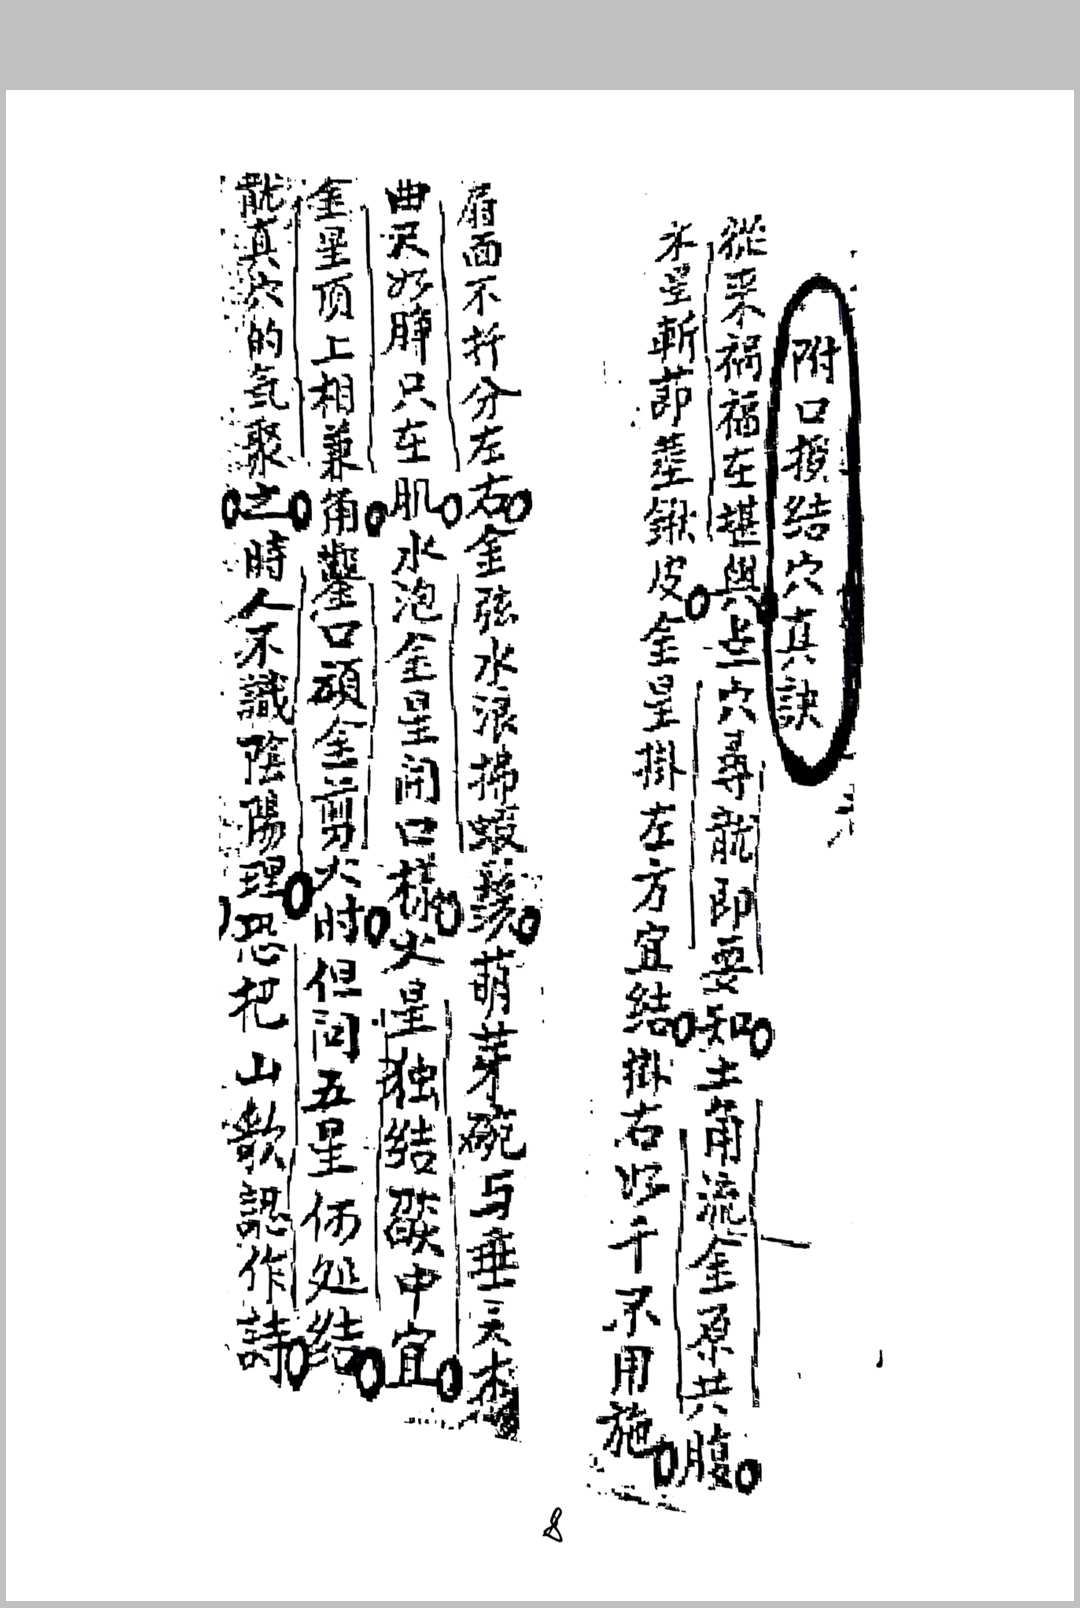 附口授结穴真訣
從来祸福在堪與点穴尋龍即要知土角流金原共腹
木星斬節莖鍬皮金星掛左方宜结掛右 干不用施
眉面不折分左右金弦水浪掃 萌芽碗与垂
曲尺 脾只在肌水泡金星開口樣火星独结燄中宜
金星顶上相兼角 口頑金剪火时但问五星何处结
龍真穴的氣聚之時人不識陰陽理恐把山歌認作詩
8